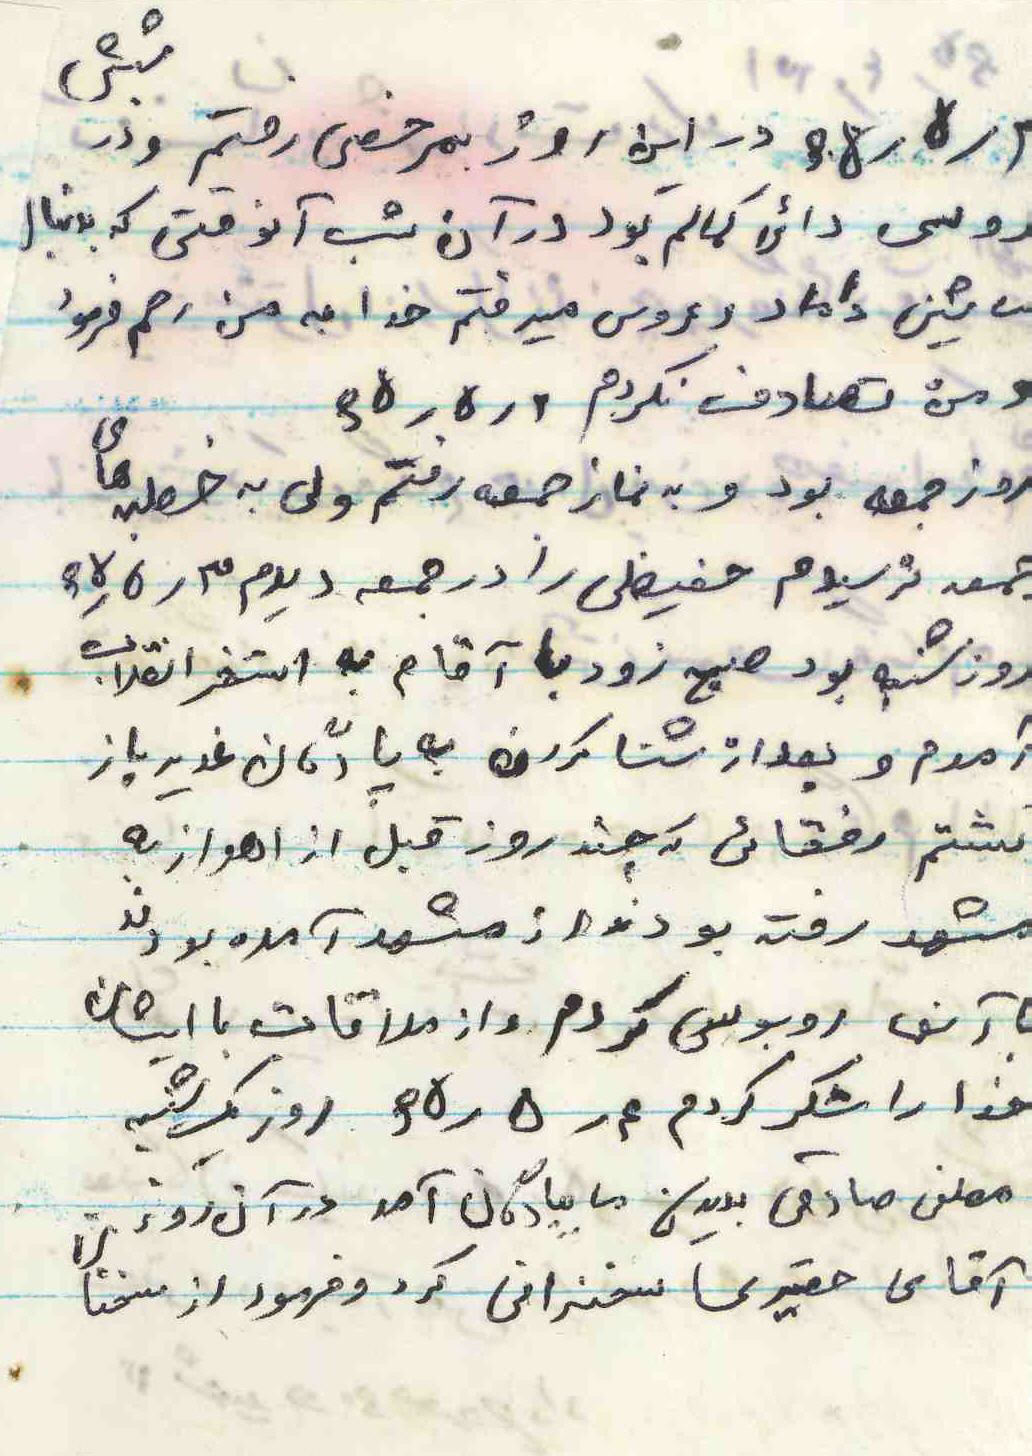 شبش
۱ر۵ر۶۵ در این روز بمرخصی رفتم و در
عروسی دائی کمالم بود در آن شب آنوقتی که بدنبال
ماشین داماد و عروس میرفتم خدا به من رحم فرمود
و من تصادف نکردم ۲ر۵ر۶۵
روز جمعه بود و به نماز جمعه رفتم ولی به خطبه های
جمعه نرسیدم حفیظی را در جمعه دیدم ۳ر۵ر۶۵
روز شنبه بود صبح زود با آقام به استخر انقلاب
آمدم و بعد از شنا کردن به پادگان غدیر باز
گشتم رفقائی که چند روز قبل از اهواز به
مشهد رفته بودند از مشهد آمده بودند
با آنها روبوسی کردم و از ملاقات با ایشان
خدا را شکر کردم ۴ر۵ر۶۵ روز یکشنبه
صادقی بدیدن ما بپادگان آمد در آن روز
آقای سخنرانی کرد و فرمود از سخنان